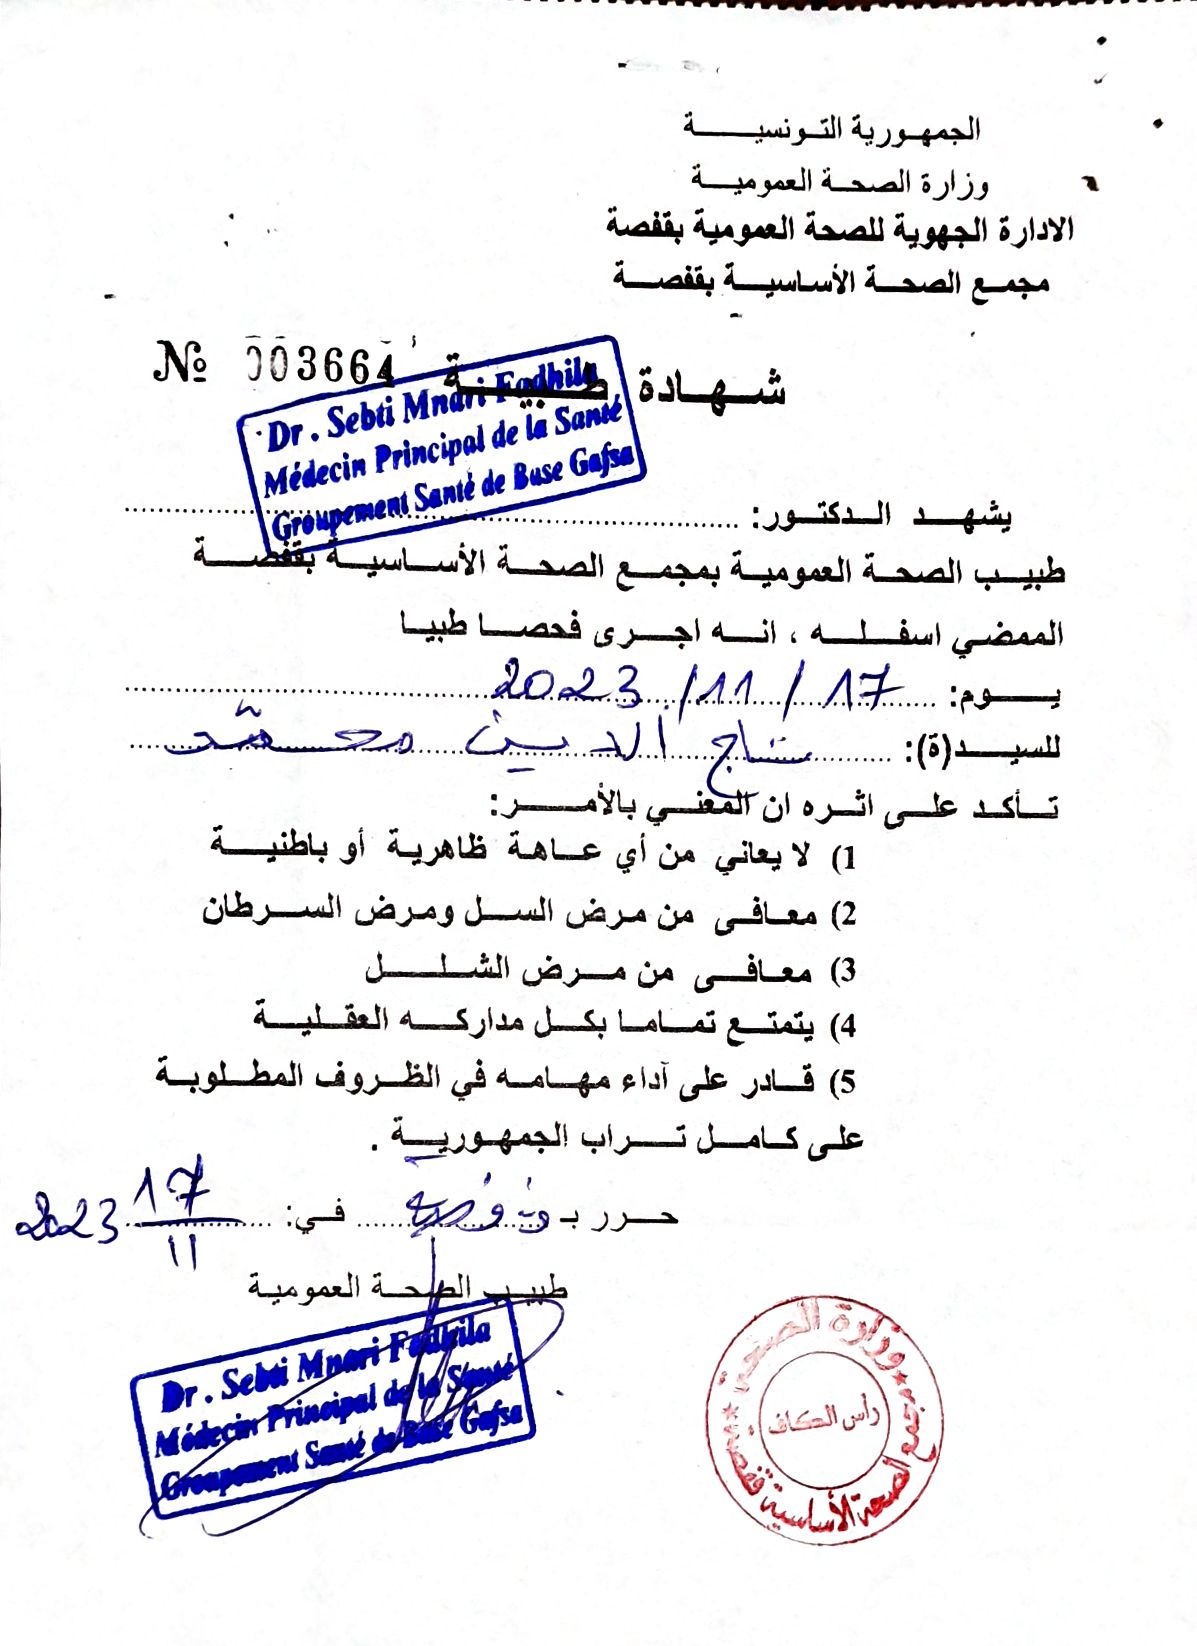 الجمهورية التونسية
وزارة الصحة العمومية
الادارة الجهوية للصحة العمومية بقفصة
مجمع الصحة الأساسية بقفصة
№ 003664
شهادة طبية
Dr. Sebti Mnari Fadhila
Médecin Principal de la Santé
Groupement Santé de Base Gafsa
يشهد الدكتور:
طبيب الصحة العمومية بمجمع الصحة الأساسية بقفصة
الممضي اسفله ، انه اجرى فحصا طبيا
يوم: 17 / 11 / 2023
للسيد(ة): تاج الدين محمد
تأكد على اثره ان المعني بالأمر:
1) لا يعاني من أي عاهة ظاهرية أو باطنية
2) معافى من مرض السل ومرض السرطان
3) معافى من مرض الشلل
4) يتمتع تماما بكل مداركه العقلية
5) قادر على آداء مهامه في الظروف المطلوبة
على كامل تراب الجمهورية .
حرر بـ قفصة في: 17 / 11 2023
طبيب الصحة العمومية
Dr. Sebti Mnari Fadhila
Médecin Principal de la Santé
Groupement Santé de Base Gafsa
وزارة الصحة
رأس الكاف
مجمع الصحة الأساسية قفصة